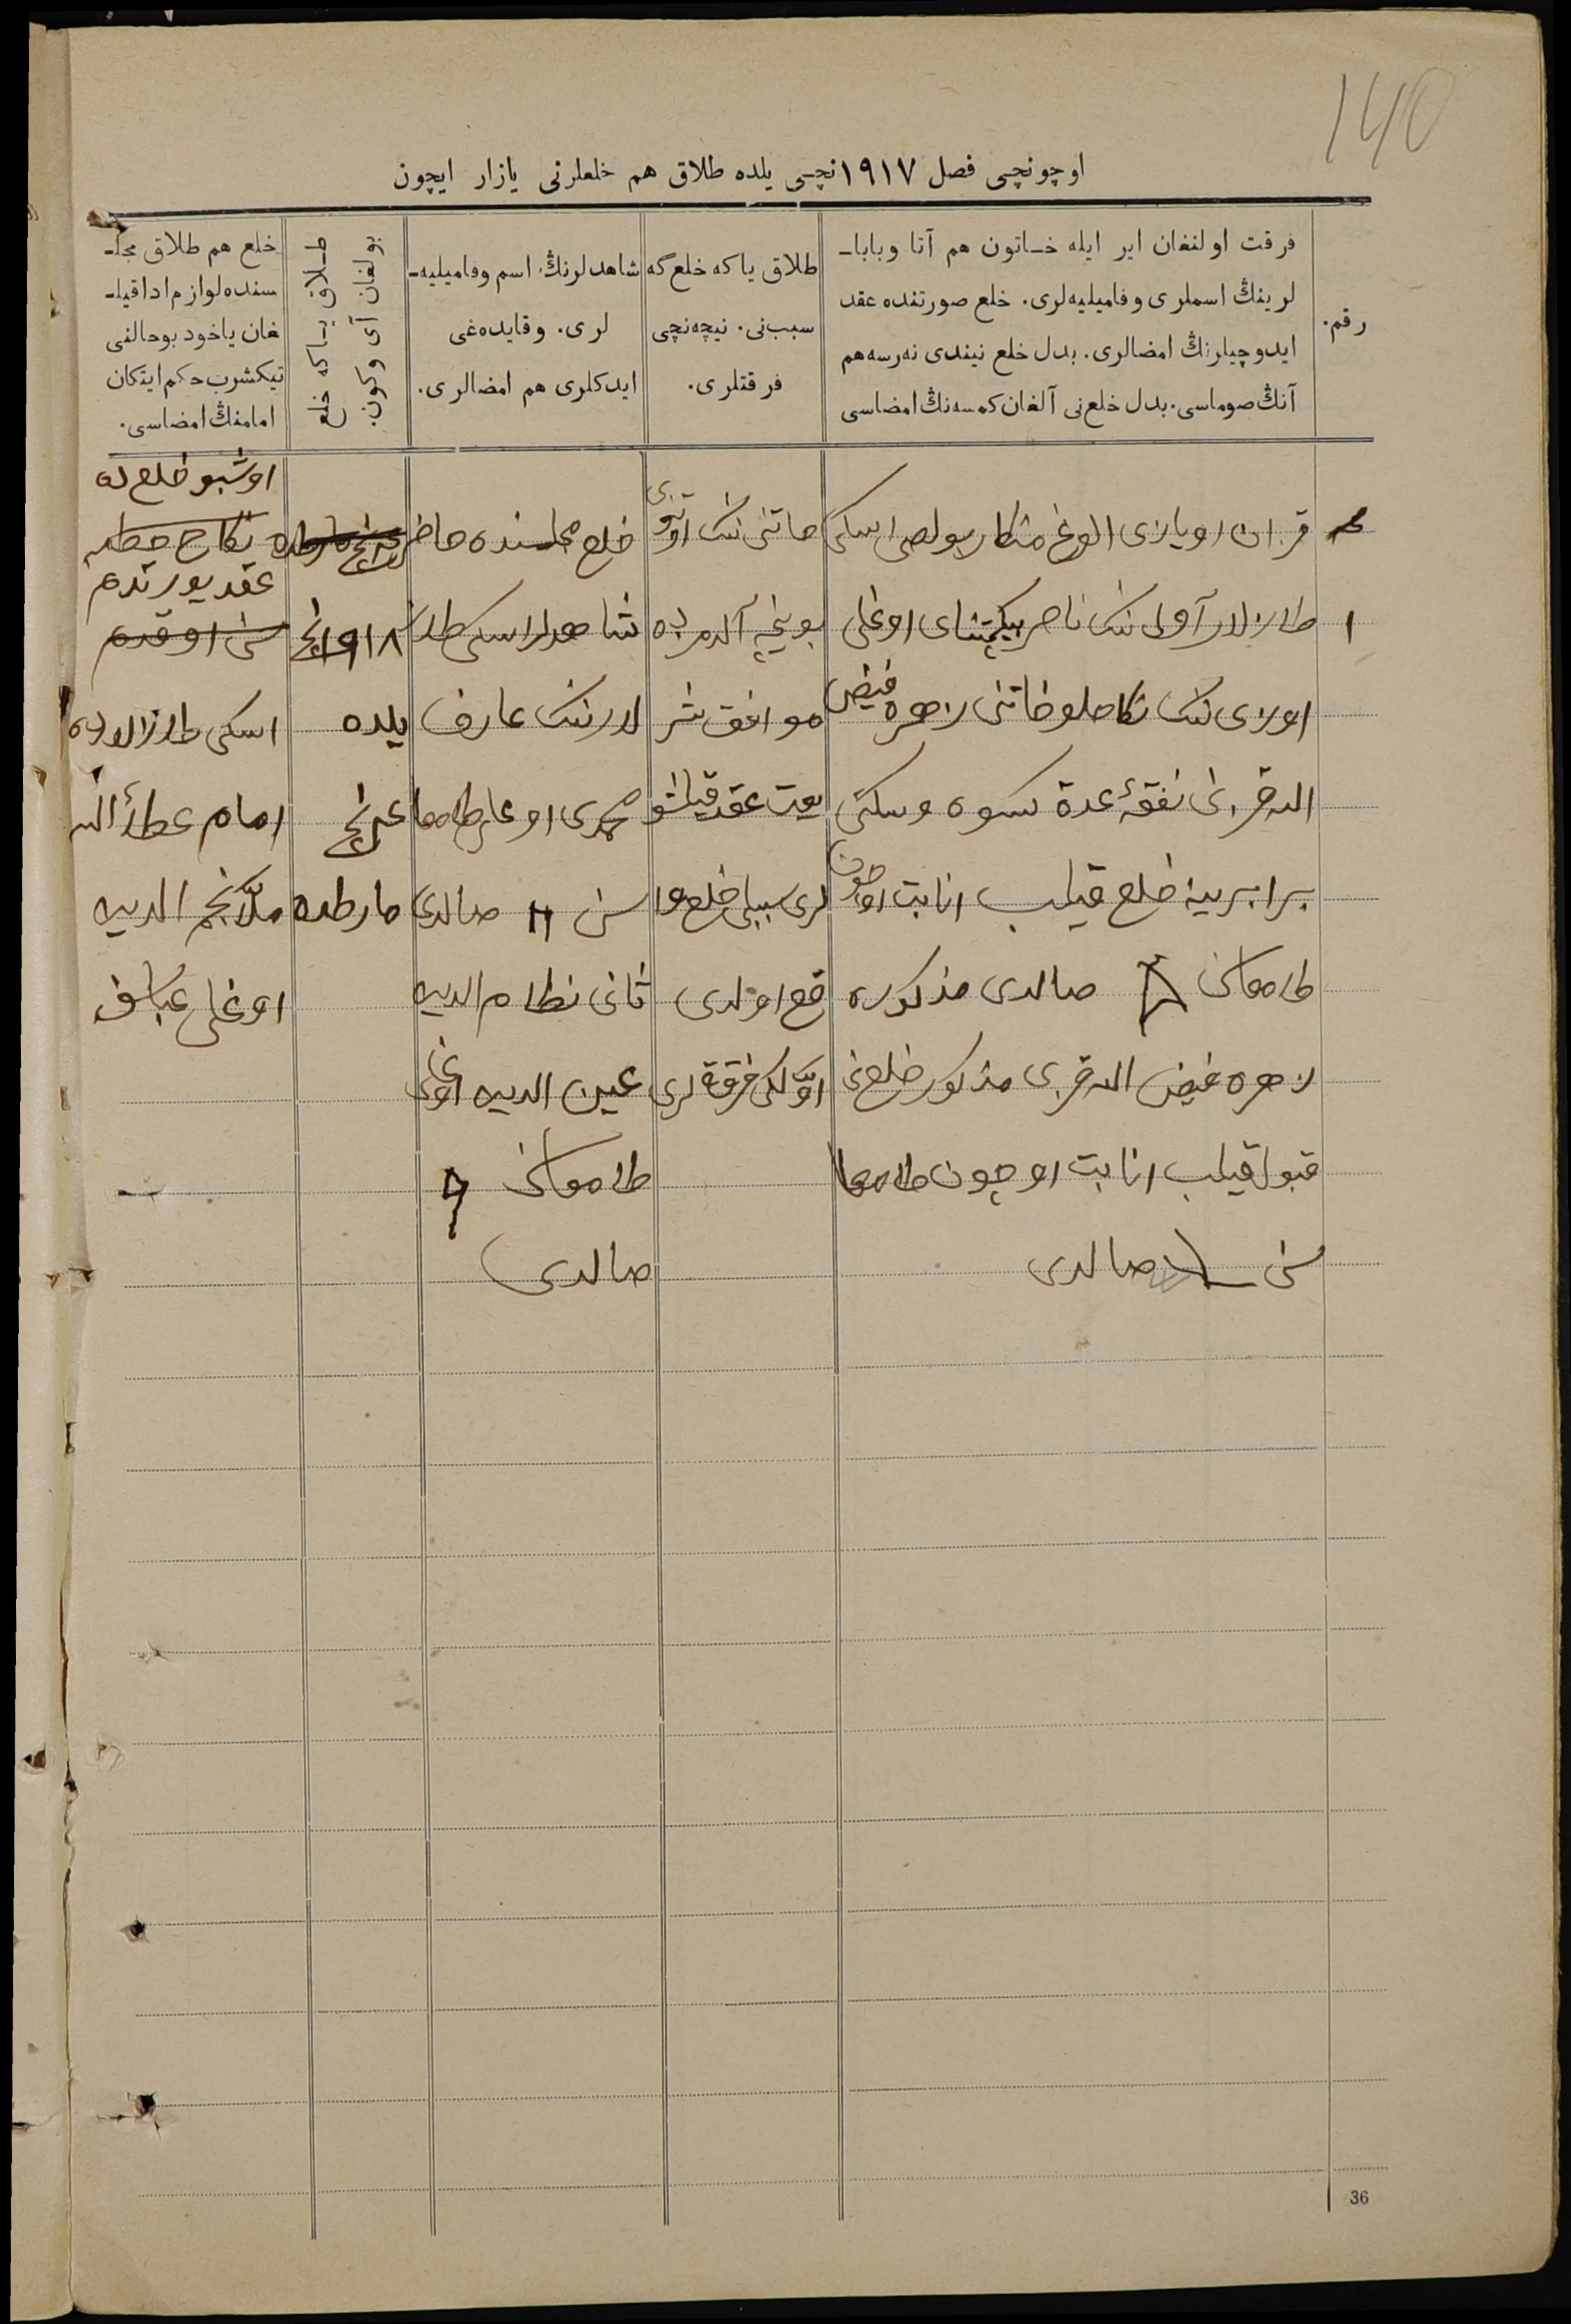 140
اوچونچی فصل ١٩١٧ نچی یلده طلاق هم خلعلرنی یازار ایچون
رقم.
فرقت اولنغان ایر ایله خـاتون هم آتا وبابا-
لرینڭ اسملری وفامیلیه‌لری. خلع صورتنده عقد
ایدوچیلرنڭ امضالری. بدل خلع نیندی نه‌رسه هم
آنڭ صوماسی. بدل خلعنی آلغان کمسه‌نڭ امضاسی
طلاق یا که خلع گه
سبب نی. نیچه نچی
فرقتلری.
شاهدلرنڭ اسم وفامیلیه-
لری. وقایده‌غی
ایدکلری هم امضالری.
طـلاق یـا که خلع
بولغان آی وکون.
خلع هم طلاق مجلـ-
سنده لوازم ادا قیلـ-
غان یاخود بوحالنی
تیکشرب حکم ایتکان
امامنڭ امضاسی.
١
قزان اویازی الوغ منکار بولصی اسکی
طازلار آولی ننک ناصر بیکچنتای اوغلی
ننک نکاحلو خاتنی زهره فیض
الله قزنی نفقهٔ عدة کسوه وسکنی
برابرینه خلع قیلب انابت اوچون
طامغاسن صالدی مذکوره
زهره فیض الله قزی مذکور خلع نی
قبول قیلب انابت اوچون طامغا
سن صالدی
خاتنی ننک اوتنوی
بوینچه آلدمزده
موافق شر
یعت عقد قیلشو
لری سببلی خلع وا
قع اولدی
اولکی فرقة لری
خلع مجلسنده حاضر
شاهدلر اسکی طاز
لارننک عارف
محمدی اوغلی طامغا
سن صالدی
ثانی نظام الدین
عین الدین اوغلی
طامغاسن
صالدی
١٩١٨ نچی
یلده
مارطده
اوشبو خلع ده
نکاح خطبه
عقد یورتدم
سن اوقدم
اسکی طازلارده
امام عطاء الله
ملا نجم الدین
اوغلی عباسف
36